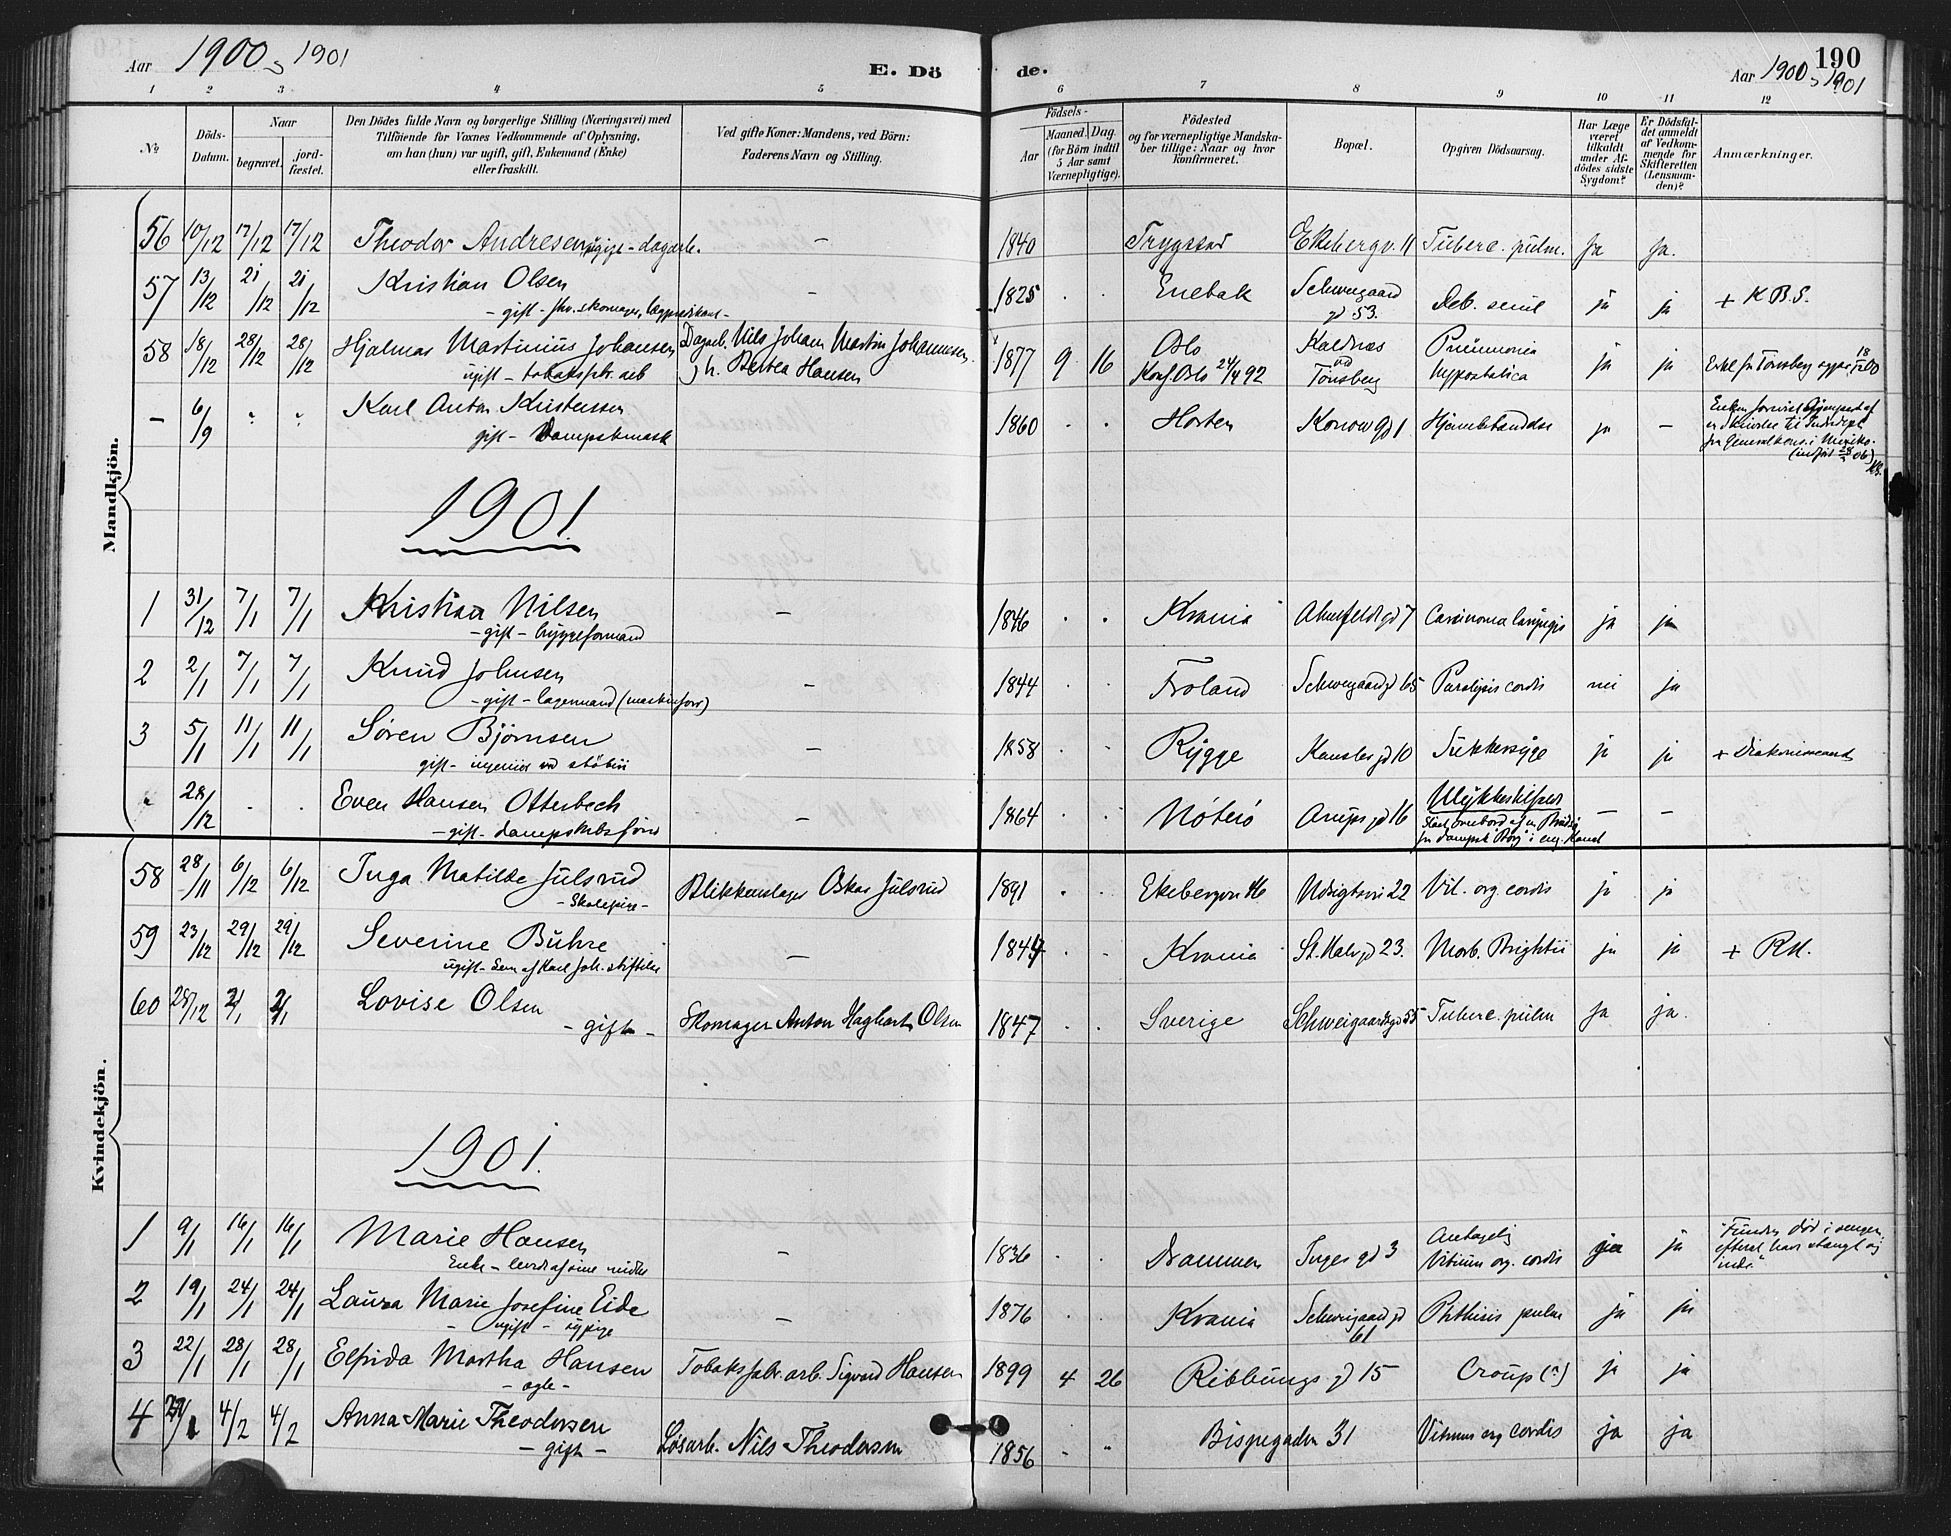 Aar 1900 & 1901
E. Døde.
Aar 1900 & 1901
190
1 2 3 4 5 6 7 8 9 10 11 12
No
Døds-Datum.
Naar
begravet.
jord-fæstet.
Den Dødes fulde Navn og borgerlige Stilling (Næringsvei) med
Tilføiende for Voxnes Vedkommende af Oplysning,
om han (hun) var ugift, gift, Enkemand (Enke)
eller fraskilt.
Ved gifte Koner: Mandens, ved Börn:
Faderens Navn og Stilling.
Fødsels-
Aar
Maaned. Dag.
(for Börn indtil
5 Aar samt
Værnepligtige).
Födested
og for værnepligtige Mandska-
ber tillige: Naar og hvor
konfirmeret.
Bopæl.
Opgiven Dödsaarsag.
Har Læge
været
tilkaldt
under Af-
dødes sidste
Sygdom?
Er Dödsfal-
det anmeldt
af Vedkom-
mende for
Skifteretten
(Lensman-
den)?
Anmærkninger.
Mandkjön.
56 10/12 17/12 17/12 Theodor Andresen ugift - dagarb. — 1840 Trygstad Ekebergv. 11 Tuberc. pulm. Ja Ja.
57 13/12 21/12 21/12 Kristian Olsen — 1825 Enebak Schweigaard gd 53. Deb. senil ja ja + K.B.S.
- gift - fhv. skomager, lægprædikant -
58 18/12 28/12 28/12 Hjalmar Martinius Johansen Dagarb. Nils Johan Martin Johannesen 1877 9 16 Oslo Kaldnæs Pneumonia ja ja
ugift - tobaksfbr. arb g h. Berthea Hansen Konf. Oslo 24/4 92 ved Tönsberg hypostatica
— 6/9 " " Karl Anton Kristensen 1860 . . Horten Konow gd 1 Hjernebetændelse ja —
gift - Dampskmask
1901
1 31/12 7/1 7/1 Kristian Nilsen — 1846 . . Krania Ahlefeldts gd 7 Carcinoma laryngis ja ja
- gift - bryggeformand
2 2/1 7/1 7/1 Knud Johnsen — 1844 . . Froland Schweigaard gd 65 Paralysis cordis nei ja
- gift - lagermand (maskinfor)
3 5/1 11/1 11/1 Sören Björnsen — 1858 . . Rygge Kanslergd 10 Sukkersyge ja ja
gift -
" 28/12 . . Even Hansen Otterbech — 1864 . . Nöterö Arups gd 16 Ulykkestilfælde — —
- gift - dampskibsförer
Kvindekjön.
58 28/11 6/12 6/12 Inga Matilde Julsrud Blikkenslager Oskar Julsrud 1891 . . Ekebergvn 16 Udsigtsvei 22 Vit. org cordis ja ja
- Skolepige -
59 23/12 29/12 29/12 Severine Buhre — 1844 . . Krania St. Halvgd 23. Morb. Brightii ja ja
ugift - Lem af Karl Joh. stiftelse
60 28/12 2/1 2/1 Lovise Olsen Skomager Anton Hagbart Olsen 1847 . . Sverige Schweigaardsgd 55 Tuberc. pulm Ja ja.
- gift -
1901.
1 9/1 16/1 16/1 Marie Hansen — 1836 . Drammen Inges gd 3 Antagelig Vitium org. cordis ja ja "Funden död i sengen,
Enke - levede af sine midler
2 19/1 24/1 24/1 Laura Marie Josefine Eide — 1876 . . Krania Schweigaard gd 61 Phthisis pulm ja ja
- ugift - sypige
3 22/1 28/1 28/1 Elfrida Martha Hansen Tobaksfabr. arb. Sigvard Hansen 1899 4 26 Ribbungs gd 15 Croup (?) ja ja
- ægte -
4 4/2 4/2 Anna Marie Theodorsen Løsarb. Nils Theodorsen 1856 - " Bispegaden 31 Vitium org cordis ja ja
- gift -